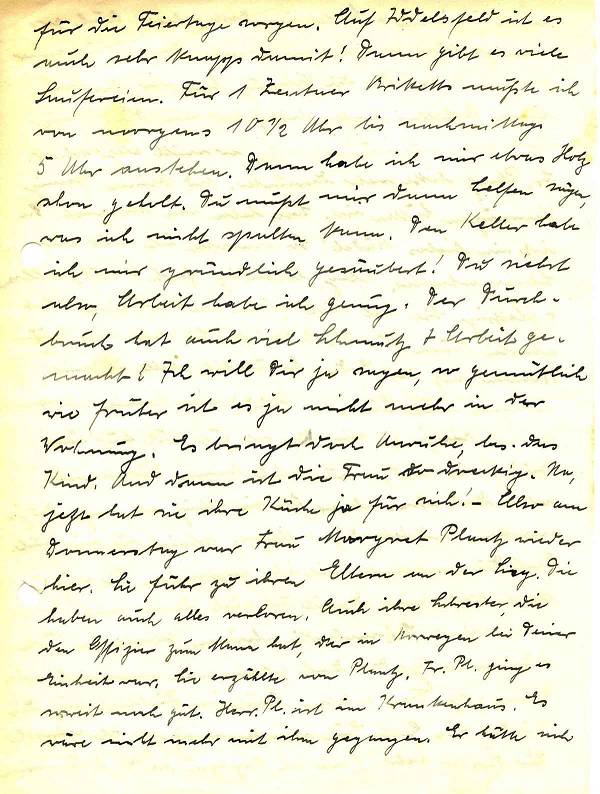 für die Feiertage sorgen. Auf Iddelsfeld ist es
auch sehr knapp damit! Dann gibt es viele
Laufereien. Für 1 Zentner Briketts mußte ich
von morgens 10 1/2 Uhr bis nachmittags
5 Uhr anstehen. Dann habe ich mir etwas Holz
schon geholt. Du mußt mir dann helfen sägen,
was ich nicht spalten kann. Den Keller habe
ich mir gründlich gesäubert! Du siehst
also, Arbeit habe ich genug. Der Durch-
bruch hat auch viel Schmutz + Arbeit ge-
macht! Ich will Dir ja sagen, so gemütlich
wie früher ist es ja nicht mehr in der
Wohnung. Es bringt doch Unruhe, bes. das
Kind. Und dann ist die Frau so dreckig. Na,
jetzt hat sie ihre Küche ja für sich! - Also am
Donnerstag war Frau Margret Plantz wieder
hier. Sie fuhr zu ihren Eltern an der Sieg. Die
haben auch alles verloren. Auch ihre Schwester, die
den Offizier zum Mann hat, der in Norwegen bei Deiner
Einheit war. Sie erzählte von Plantz. Fr. Pl. ging es
soweit noch gut. Herr. Pl. ist im Krankenhaus. Es
wäre nicht mehr mit ihm gegangen. Er hätte sich